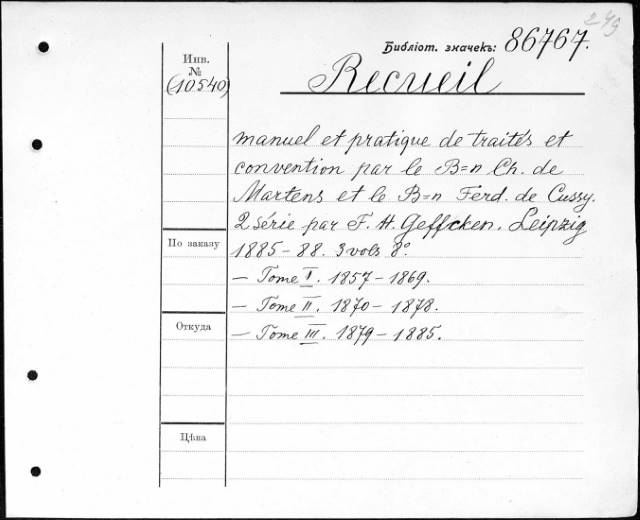 249
Библіот. значекъ: 86767.
Инв.
№
(10540)
Recueil
manuel et pratique de traités et
convention par le B=n Ch. de
Martens et le B=n Ferd. de Cussy.
2 série par F. H. Geffcken. Leipzig
1885-88. 3 vols 8°
— Tome I. 1857-1869.
— Tome II. 1870-1878.
— Tome III. 1879-1885.
По заказу
Откуда
Цѣна